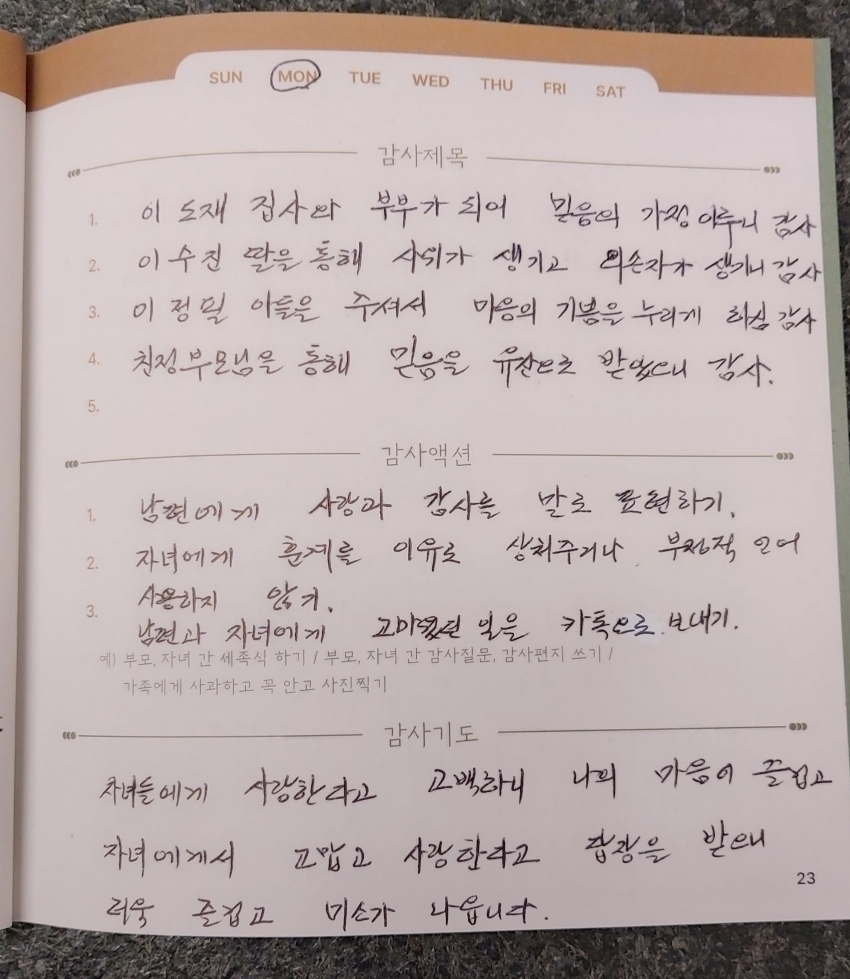 SUN MON TUE WED THU FRI SAT
감사제목
1. 이소재 집사와 부부가 되어 믿음의 가정 이루니 감사
2. 이수진 딸을 통해 사위가 생기고 외손자가 생기니 감사
3. 이정필 아들을 주셔서 마음의 기쁨을 누리게 하심 감사
4. 친정부모님을 통해 믿음을 유산으로 받았으니 감사.
5.
감사액션
1. 남편에게 사랑과 감사를 말로 표현하기.
2. 자녀에게 훈계를 이유로 상처주거나 부정적 언어
사용하지 않기.
3. 남편과 자녀에게 고마웠던 일을 카톡으로 보내기.
예) 부모, 자녀 간 세족식 하기 / 부모, 자녀 간 감사질문, 감사편지 쓰기 /
가족에게 사과하고 꼭 안고 사진찍기
감사기도
자녀들에게 사랑한다고 고백하니 나의 마음이 즐겁고
자녀에게서 고맙고 사랑한다고 답장을 받으니
더욱 즐겁고 미소가 나옵니다.
23